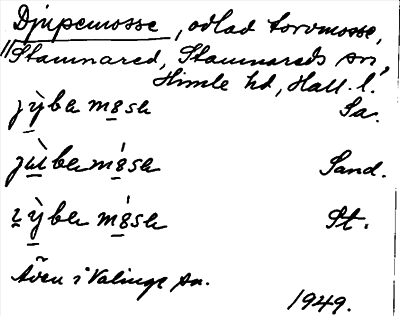 Djupemosse, odlad torvmosse,
"Stamnared, Stamnareds sn,
Himle hd, Hall. l.
jỳ̱ba mo̱sa Sa.
jùi̱ba mó̱sa Sand.
ɿ̱ỳ̱ba mó̱sa St.
Även i Valinge sn.
1949.